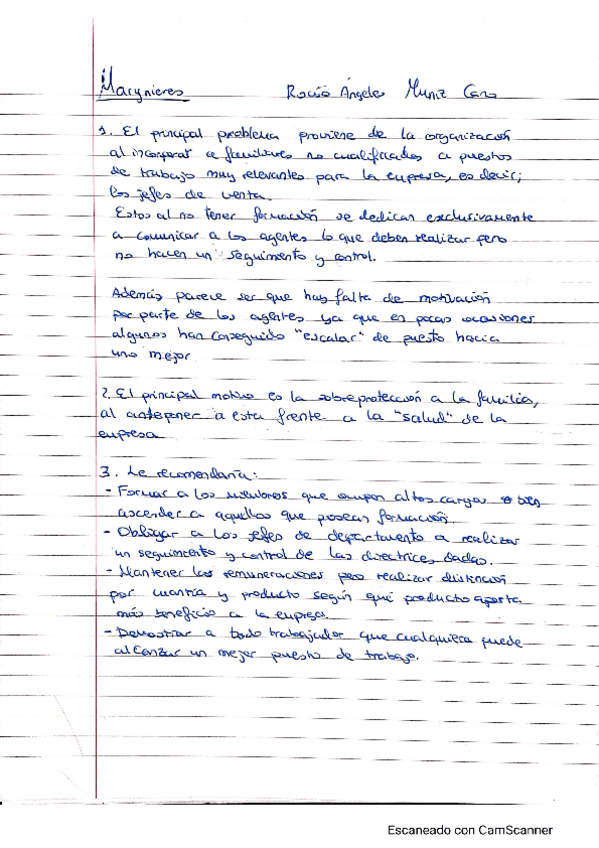 Macynieres Rocío Ángeles Muniz Caro
1. El principal problema proviene de la organización
al incorporar a familiares no cualificados a puestos
de trabajo muy relevantes para la empresa, es decir,
los jefes de venta.
Estos al no tener formación se dedican exclusivamente
a comunicar a los agentes lo que deben realizar pero
no hacen un seguimiento y control.
Además parece ser que hay falta de motivación
por parte de los agentes ya que en pocas ocasiones
algunos han conseguido "escalar" de puesto hacia
uno mejor
2. El principal motivo es la sobreprotección a la familia,
al anteponer a esta frente a la "salud" de la
empresa
3. Le recomendaría:
- Formar a los miembros que ocupen altos cargos o bien
ascender a aquellos que posean formación.
- Obligar a los jefes de departamento a realizar
un seguimiento y control de las directrices dadas.
- Mantener las remuneraciones pero realizar distinción
por cuantía y producto según que producto aporta
más beneficio a la empresa.
- Demostrar a todo trabajador que cualquiera puede
alcanzar un mejor puesto de trabajo.
Escaneado con CamScanner